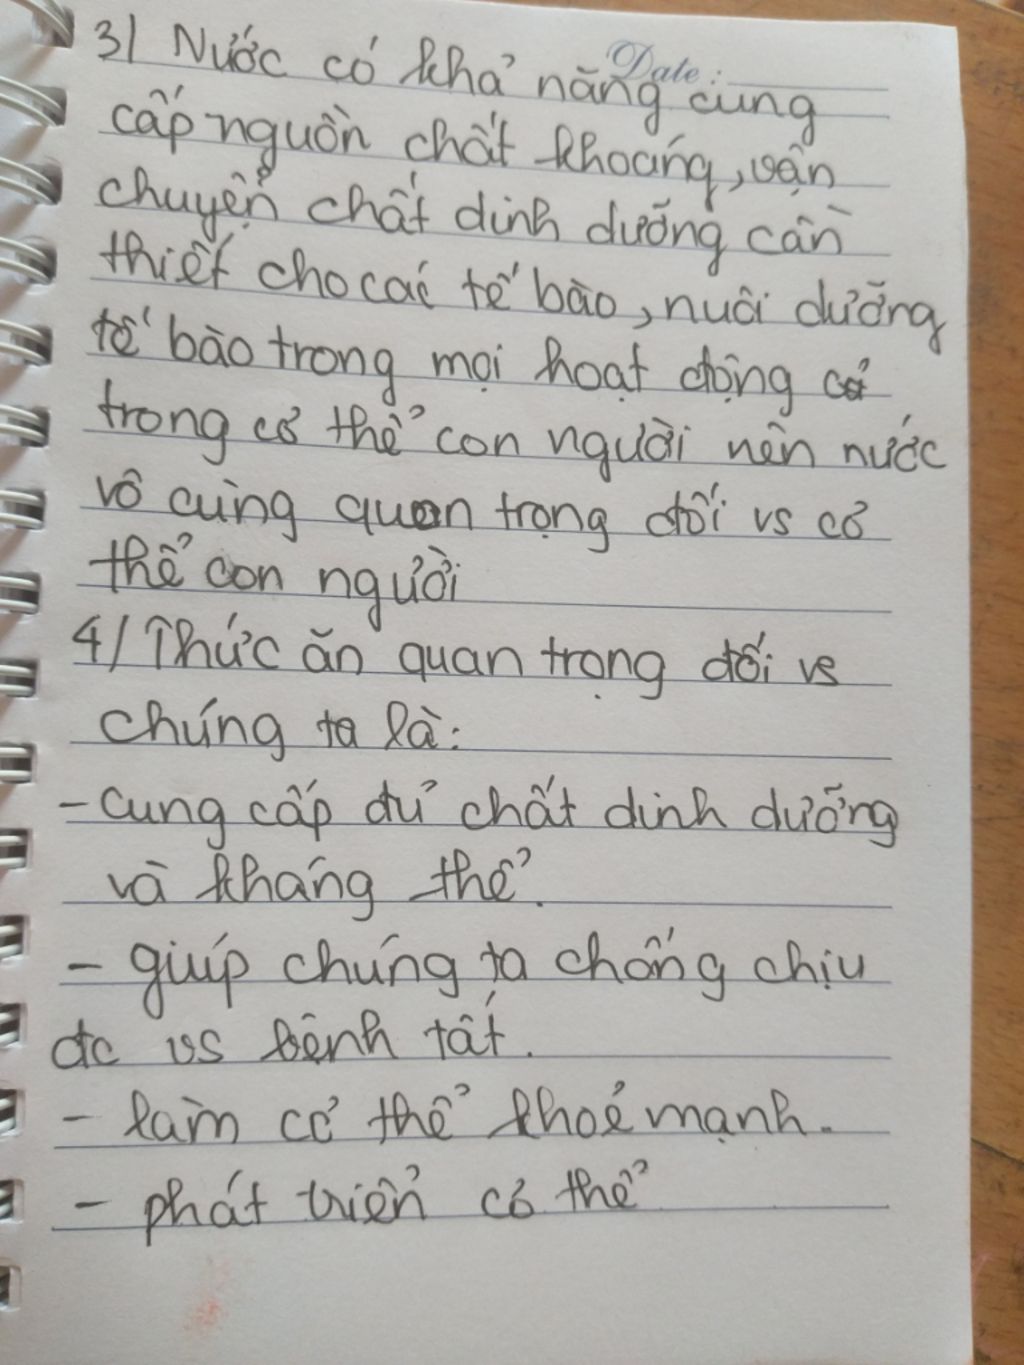 Date:
3/ Nước có khả năng cung
cấp nguồn chất khoáng, vận
chuyện chất dinh dưỡng cần
thiết cho các tế bào, nuôi dưỡng
tế bào trong mọi hoạt động
trong cơ thể con người nên nước
vô cùng quan trọng đối vs cơ
thể con người
4/ Thức ăn quan trọng đối vs
chúng ta là:
- cung cấp đủ chất dinh dưỡng
và kháng thể.
- giúp chúng ta chống chịu
đc vs bệnh tất.
- làm cơ thể khoẻ mạnh.
- phát triển cơ thể